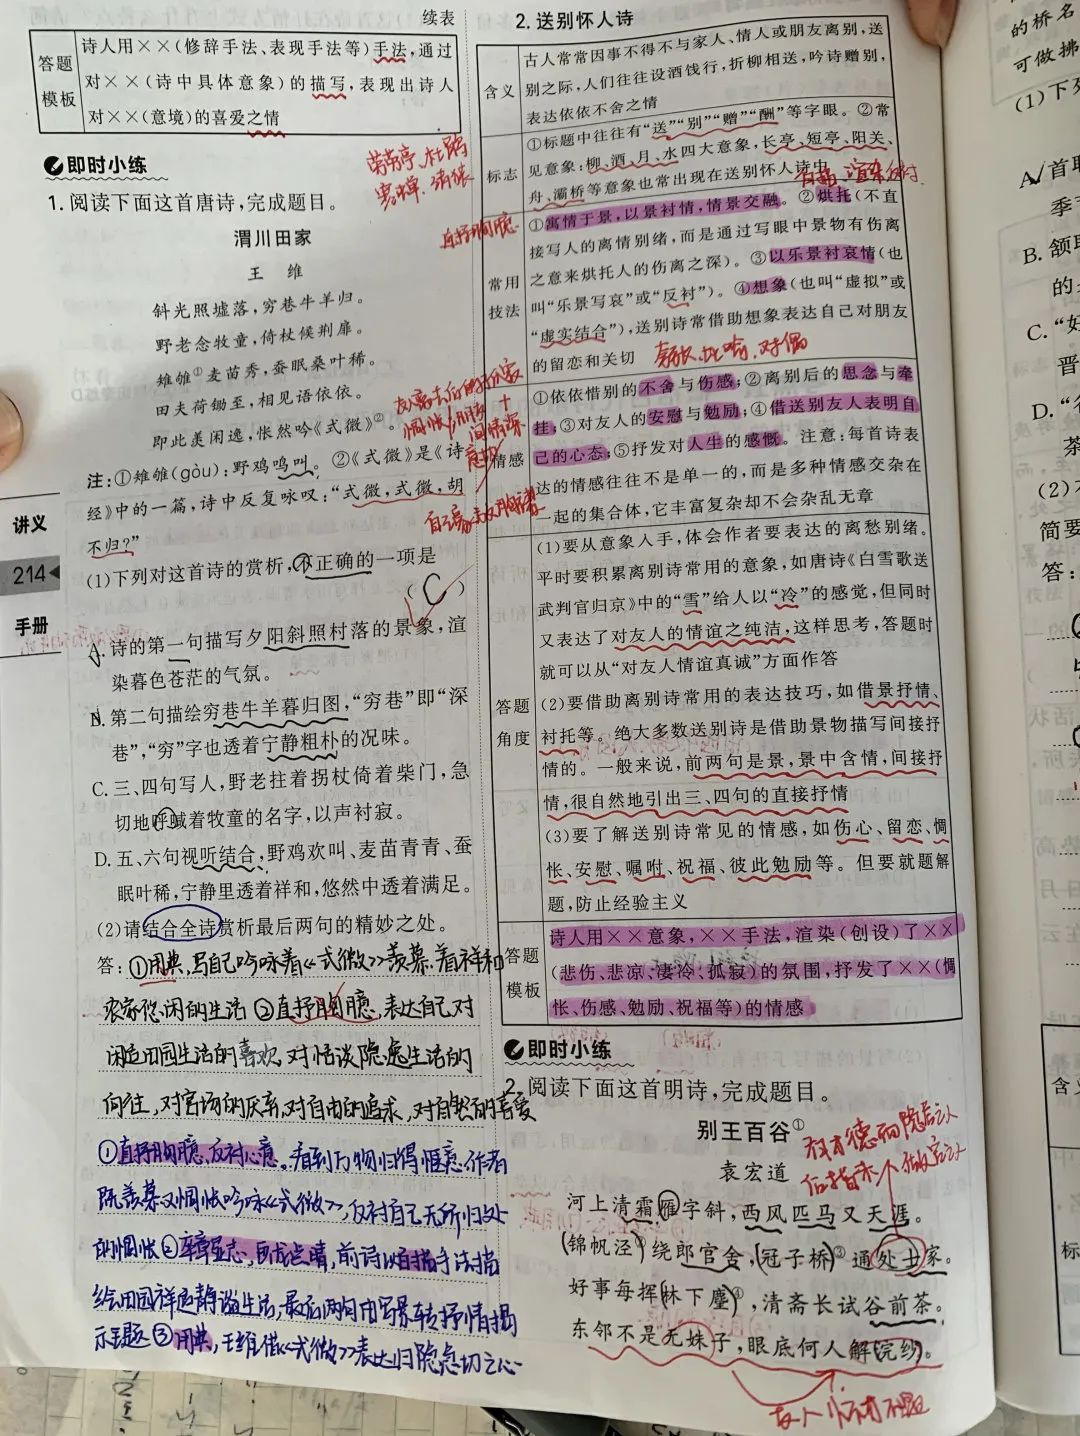 续表
答题模板
诗人用××(修辞手法、表现手法等)手法,通过
对××(诗中具体意象)的描写,表现出诗人
对××(意境)的喜爱之情
即时小练
1.阅读下面这首唐诗,完成题目。
渭川田家
王 维
斜光照墟落,穷巷牛羊归。
野老念牧童,倚杖候荆扉。
雉雊①麦苗秀,蚕眠桑叶稀。
田夫荷锄至,相见语依依。
即此羡闲逸,怅然吟《式微》②。
注:①雉雊(gòu):野鸡鸣叫。②《式微》是《诗
经》中的一篇,诗中反复咏叹:“式微,式微,胡
不归?”
(1)下列对这首诗的赏析,不正确的一项是
(C)
A.诗的第一句描写夕阳斜照村落的景象,渲
染暮色苍茫的气氛。
B.第二句描绘穷巷牛羊暮归图,“穷巷”即“深
巷”,“穷”字也透着宁静粗朴的况味。
C.三、四句写人,野老拄着拐杖倚着柴门,急
切地呼喊着牧童的名字,以声衬寂。
D.五、六句视听结合,野鸡欢叫、麦苗青青、蚕
眠叶稀,宁静里透着祥和,悠然中透着满足。
(2)请结合全诗赏析最后两句的精妙之处。
答:①用典,写自己吟咏着《式微》羡慕着祥和
农家悠闲的生活②直抒胸臆,表达自己对
闲适田园生活的喜欢,对恬淡隐逸生活的
向往,对官场的厌弃,对自由的追求,对自然的喜爱
①直抒胸臆,反衬心意。看到万物归得惬意,作者
既羡慕又惆怅吟咏《式微》,反衬自己无所归处
的惆怅②卒章显志,画龙点睛,前诗以白描手法描
绘田园祥和静谧生活,最后两句由写景转抒情揭
示主题③用典,王维借《式微》表达归隐急切之心
讲义
214
手册
2.送别怀人诗
含义
古人常常因事不得不与家人、情人或朋友离别,送
别之际,人们往往设酒饯行,折柳相送,吟诗赠别,
表达依依不舍之情
标志
①标题中往往有“送”“别”“赠”“酬”等字眼。②常
见意象:柳、酒、月、水四大意象,长亭、短亭、阳关、
舟、灞桥等意象也常出现在送别怀人诗中
直抒胸臆
常用技法
①寓情于景,以景衬情,情景交融。②烘托(不直
接写人的离情别绪,而是通过写眼中景物有伤离
之意来烘托人的伤离之深)。③以乐景衬哀情(也
叫“乐景写哀”或“反衬”)。④想象(也叫“虚拟”或
“虚实结合”),送别诗常借助想象表达自己对朋友
的留恋和关切
比喻、对偶
情感
①依依惜别的不舍与伤感;②离别后的思念与牵
挂;③对友人的安慰与勉励;④借送别友人表明自
己的心态;⑤抒发对人生的感慨。注意:每首诗表
达的情感往往不是单一的,而是多种情感交杂在
一起的集合体,它丰富复杂却不会杂乱无章
答题角度
(1)要从意象入手,体会作者要表达的离愁别绪。
平时要积累离别诗常用的意象,如唐诗《白雪歌送
武判官归京》中的“雪”给人以“冷”的感觉,但同时
又表达了对友人的情谊之纯洁,这样思考,答题时
就可以从“对友人情谊真诚”方面作答
(2)要借助离别诗常用的表达技巧,如借景抒情、
衬托等。绝大多数送别诗是借助景物描写间接抒
情的。一般来说,前两句是景,景中含情,间接抒
情,很自然地引出三、四句的直接抒情
(3)要了解送别诗常见的情感,如伤心、留恋、惆
怅、安慰、嘱咐、祝福、彼此勉励等。但要就题解
题,防止经验主义
答题模板
诗人用××意象,××手法,渲染(创设)了××
(悲伤、悲凉、凄冷、孤寂)的氛围,抒发了××(惆
怅、伤感、勉励、祝福等)的情感
即时小练
2.阅读下面这首明诗,完成题目。
别王百谷①
袁宏道
河上清霜雁字斜,西风匹马又天涯。
锦帆泾②绕郎官舍,冠子桥③通处士家。
好事每挥林下麈④,清斋长试谷前茶。
东邻不是无姝子,眼底何人解浣纱。
的桥名
可做拂
(1)下列
A.首联
季节
B.颔联
的是
C.“好
晋
D.“
茶
(2)
简要
答: